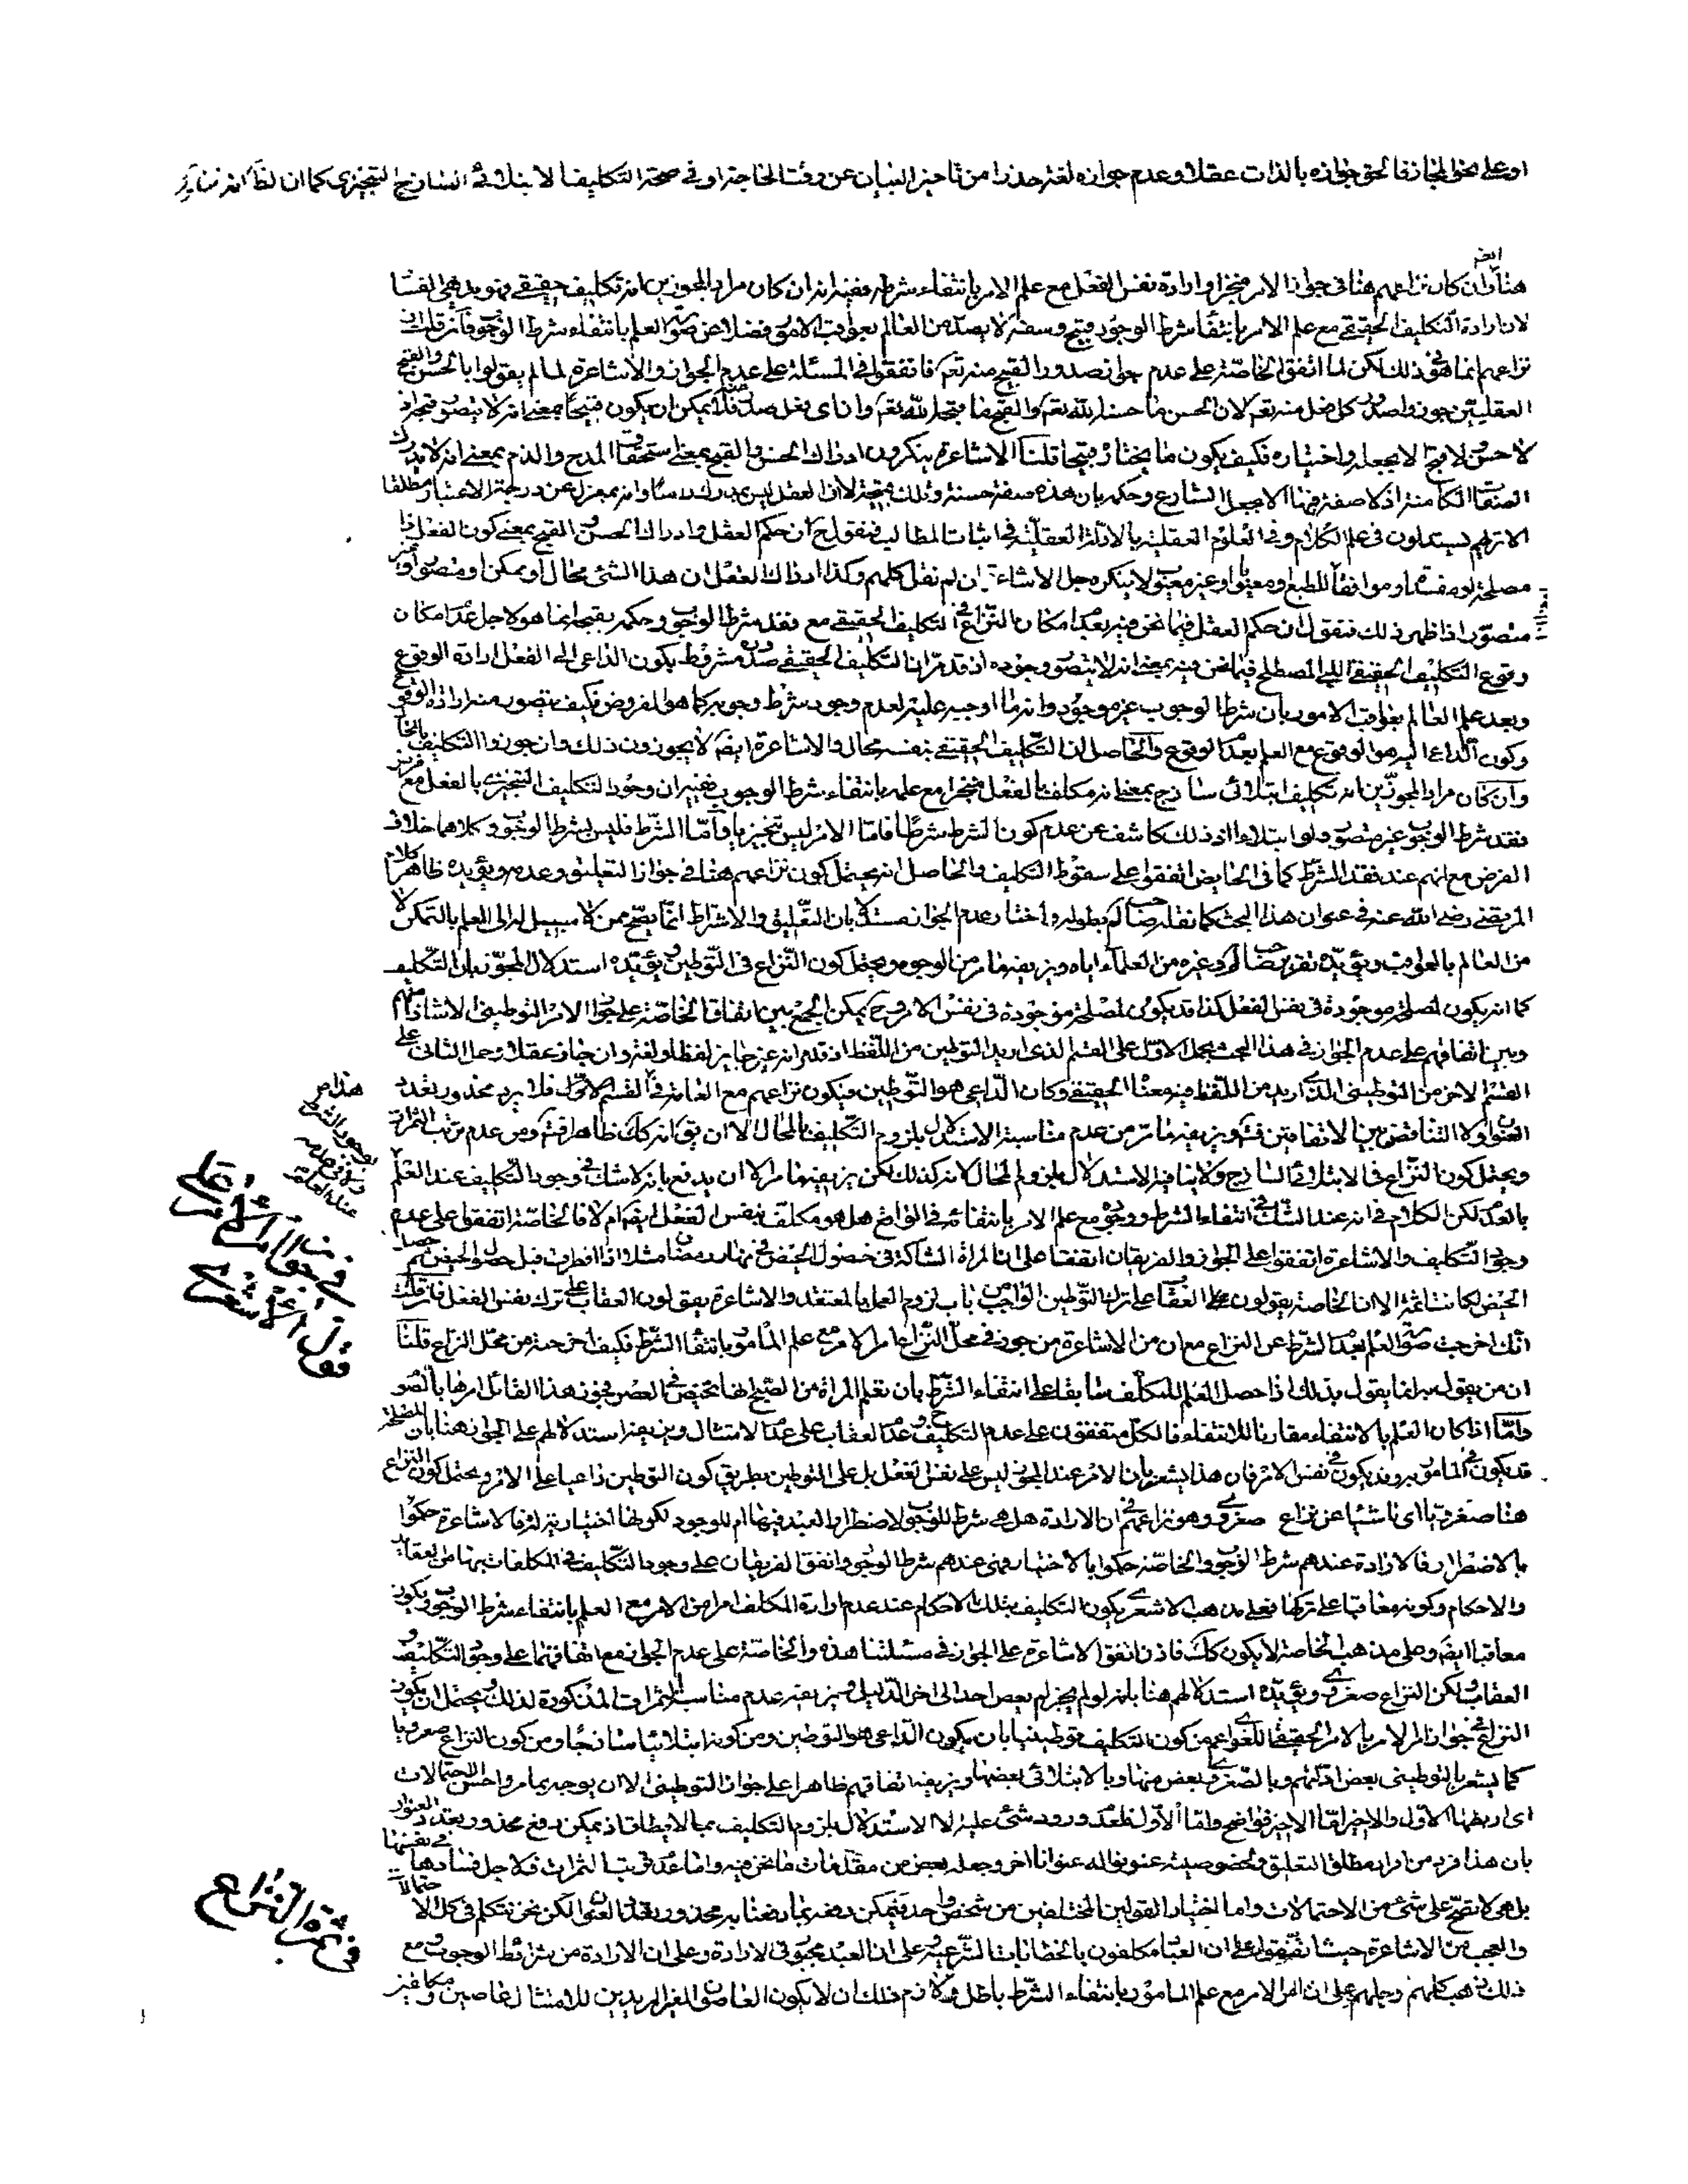 او على نحو المجاز فالحق جوازه بالذات عقلا وعدم جوازه لغة حذرا من تاخير البيان عن وقت الحاجة او في صحة التكليف الابتلائى الساذج التنجيزى كما ان
هنا وان كان نزاعهم هنا فى جواز الامر منجزا وارادة نفس الفعل مع علم الامر بانتفاء شرطه ففيه انه ان كان مراد المجوزين انه تكليف حقيقى فهو بديهى الفساد
لان ارادة التكليف الحقيقى مع علم الامر بانتفاء شرط الوجود قبيح وسفه لا يصدر من العالم بعواقب الامور فضلا عن صورة العلم بانتفاء شرط الوجوب فان قلت ان
نزاعهم انما هو فى ذلك لكن لما اتفق الخاصة على عدم جواز صدور القبيح منه تعم فاتفقوا فى المسئلة على عدم الجواز والاشاعرة لما لم يقولوا بالحسن والقبح
العقليين جوزوا صدور كل فعل منه تعم لان الحسن ما حسنه الله تعم والقبيح ما قبحه الله تعم واى فعل صدر منه فلا يمكن ان يكون قبيحا بمعنى انه لا يتصور قبحه اذ
لا حسن ولا قبح الا بجعله واختياره فكيف يكون ما يختاره قبيحا قلنا الاشاعرة ينكرون ادراك الحسن والقبح بمعنى استحقاق المدح والذم بمعنى انه لا يدرك
الصفات الكامنة اذ لا صفة فيها الا بجعل الشارع وحكمه بان هذه صفة حسنة وتلك قبيحة لا ان العقل ليس بمدرك راسا وانه بمعزل عن درجة الاعتبار مطلقا
الا ترى انهم يستدلون فى علم الكلام وفى العلوم العقلية بالادلة العقلية فى اثبات المطالب فنقول ح ان حكم العقل وادراك الحسن والقبح بمعنى كون الفعل ذا
مصلحة او مفسدة او موافقا للطبع ومعيوبا وغير معيوب لا ينكره جل الاشاعرة ان لم نقل كلهم وكذا ادراك العقل ان هذا الشئ محال او ممكن او متصور او غير
متصور اذا ظهر ذلك فنقول ان حكم العقل فيما نحن فيه بعدم امكان النزاع فى التكليف الحقيقى مع فقد شرط الوجوب وحكمه بقبحه انما هو لاجل عدم امكان
وقوع التكليف الحقيقى المصطلح فيما نحن فيه بمعنى انه لا يتصور وجوده اذ قد مر ان التكليف الحقيقى صدوره مشروط بكون الداعى الى الفعل ارادة الوقوع
وبعد علم العالم بعواقب الامور بان شرط الوجوب غير موجود وانه ما اوجبه عليه لعدم وجود شرط وجوبه كما هو المفروض فكيف يتصور منه ارادة الوقوع
وكون الداعى اليه هو الوقوع مع العلم بعدم الوقوع والحاصل ان التكليف الحقيقى بنفسه محال والاشاعرة ايضم لا يجوزون ذلك وان جوزوا التكليف بالمحال
وان كان مراد المجوزين انه تكليف ابتلائى ساذج بمعنى انه مكلف بالفعل منجزا مع علمه بانتفاء شرط الوجوب ففيه ان وجود التكليف التنجيزى بالفعل مع فرض
فقد شرط الوجوب غير متصور ولو ابتلاء اذ ذلك كاشف عن عدم كون الشرط شرطا فاما الامر ليس تنجيزيا واما الشرط فليس بشرط الوجوب وكلاهما خلاف
الفرض مع انهم عند فقد الشرط كما فى الحايض اتفقوا على سقوط التكليف والحاصل انه يحتمل كون نزاعهم هنا فى جواز التعليق وعدمه ويؤيده ظاهر كلام
المرتضى رضى الله عنه فى عنوان هذا البحث كما نقله صاحب لم بطوله واختار عدم الجواز مستدلا بان التعليق والاشتراط انما يصح ممن لا سبيل له الى العلم بالتمكن لا
من العالم بالعواقب ويؤيده تقرير صاحب لم وغيره من العلماء اياه ويزيفه ما مر من الوجوه ويحتمل كون النزاع فى التوطين ويؤيده استدلال المجوز بان التكليف
كما انه يكون لمصلحة موجودة فى نفس الفعل كذا قد يكون لمصلحة موجودة فى نفس الامر وح يمكن الجمع بين اتفاق الخاصة على جواز الامر التوطينى
وبين اتفاقهم على عدم الجواز فى هذا البحث بحمل الاول على القسم الذى اريد التوطين من اللفظ اذ قد مر انه غير جايز لفظا ولغة وان جاز عقلا وحمل الثانى على
القسم الاخر من التوطينى الذى اريد من اللفظ فيه معناه الحقيقى وكان الداعى هو التوطين فيكون نزاعهم مع العامة فى القسم الاول فلا يرد محذور تعدد
العنوان ولا التناقض بين الاتفاقين فتم ويزيفه ما مر من عدم مناسبة الاستدلال بلزوم التكليف بالمحال الا ان يق انه كك ظاهرا فتم ومن عدم ترتب الثمرة
ويحتمل كون النزاع فى الابتلائى الساذج ولا ينافيه الاستدلال بلزوم المحال لانه كذلك لكن يزيفه ما مر الا ان يدفع بانه لا شك فى وجود التكليف عند العلم
بالعدم لكن الكلام فى انه عند الشك فى انتفاء الشرط ووجوده مع علم الامر بانتفائه فى الواقع هل هو مكلف بنفس الفعل ايضم ام لا فالخاصة اتفقوا على عدم
وجود التكليف والاشاعرة اتفقوا على الجواز والفريقان اتفقتا على ان المراة الشاكة فى حصول الحيض فى نهار رمضان مثلا اذا افطرت قبل حصول الحيض ثم حصل
الحيض كانت اثمة الا ان الخاصة يقولون العقاب على ترك التوطين الواجب من باب لزوم العمل بالمعتقد والاشاعرة يقولون العقاب على ترك نفس الفعل فان قلت
انك اخرجت صورة العلم بفقد الشرط عن النزاع مع ان من الاشاعرة من جوز فى محل النزاع امر الامر مع علم المامور بانتفاء الشرط فكيف اخرجته من محل النزاع قلنا
ان من يقول به انما يقول بذلك اذا حصل العلم للمكلف سابقا على انتفاء الشرط بان تعلم المراة من الصبح انها تحيض فى العصر فجوز هذا القائل امرها بالصوم
واما اذا كان العلم بالانتفاء مقارنا للانتفاء فالكل متفقون على عدم التكليف ح وعدم العقاب على عدم الامتثال ويزيفه استدلالهم على الجواز هنا بان المصلحة
قد يكون فى المامور به وقد يكون فى نفس الامر فان هذا يشعر بان الامر عند المجوز ليس على نفس الفعل بل على التوطين بطريق كون التوطين داعيا على الامر ويحتمل كون النزاع
هنا صغرويا اى ناشيا عن نزاع صغروى وهو نزاعهم فى ان الارادة هل هى شرط للوجوب لاضطرار العبد فيها ام للوجود لكونها اختيارية له فالاشاعرة حكموا
بالاضطرار فالارادة عندهم شرط الوجوب والخاصة حكموا بالاختيار فهى عندهم شرط الوجود واتفق الفريقان على وجود التكليف فى المكلفات بها من العقايد
والاحكام وكونه معاقبا على تركها فعلى مذهب الاشعرى يكون التكليف بتلك الاحكام عند عدم ارادة المكلف امرا من الامر مع العلم بانتفاء شرط الوجوب ويكون
معاقبا ايضم وعلى مذهب الخاصة لا يكون كك فاذن اتفقوا الاشاعرة على الجواز فى مسئلتنا هذه والخاصة على عدم الجواز مع اتفاقهما على وجود التكليف و
العقاب ولكن النزاع صغروى ويؤيده استدلالهم هنا بانه لو لم يجز لم يعص احد الى اخر الدليل ويزيفه عدم مناسبة الثمرات المذكورة لذلك ويحتمل ان يكون
النزاع فى جواز امر الامر بالامر الحقيقى اللغوى اعم من كون التكليف توطينيا بان يكون الداعى هو التوطين ومن كونه ابتلائيا ساذجا ومن كون النزاع صغرويا
كما يشعر بالتوطينى بعض ادلتهم وبالصغروى بعض منها وبالابتلائى بعضها ويزيفه اتفاقهم ظاهرا على جواز التوطينى الا ان يوجه بما مر واحسن الاحتمالات
اى اربطها الاول والاخير اما الاخير فواضح واما الاول فلعدم ورود شئ عليه الا الاستدلال بلزوم التكليف بما لا يطاق اذ يمكن دفع محذور تعدد العنوان
بان هذا فرد من افراد مطلق التعليق ولخصوصيته عنونوا له عنوانا اخر وجعله بعض من مقدمات ما نحن فيه واما عدم ترتب الثمرات فلاجل فسادها فى نفسها
بل هى لا تصح على شئ من الاحتمالات واما اختيار القولين المختلفين من شخص واحد فيمكن دفعه بما دفعنا به محذور تعدد العنوان لكن نحن نتكلم فى كل الاحتمالات
والعجب من الاشاعرة حيث اتفقوا على ان العباد مكلفون بالخطابات الشرعية وعلى ان العبد مجبور فى الارادة وعلى ان الارادة من شرائط الوجوب ومع
ذلك ذهب كلهم وجلهم على ان امر الامر مع علم المامور بانتفاء الشرط باطل ولازم ذلك ان لا يكون العاصون الغير المريدين للامتثال عاصين
فى بيان
جواز الامر
على قول الاشعرى
فى ثمرة النزاع